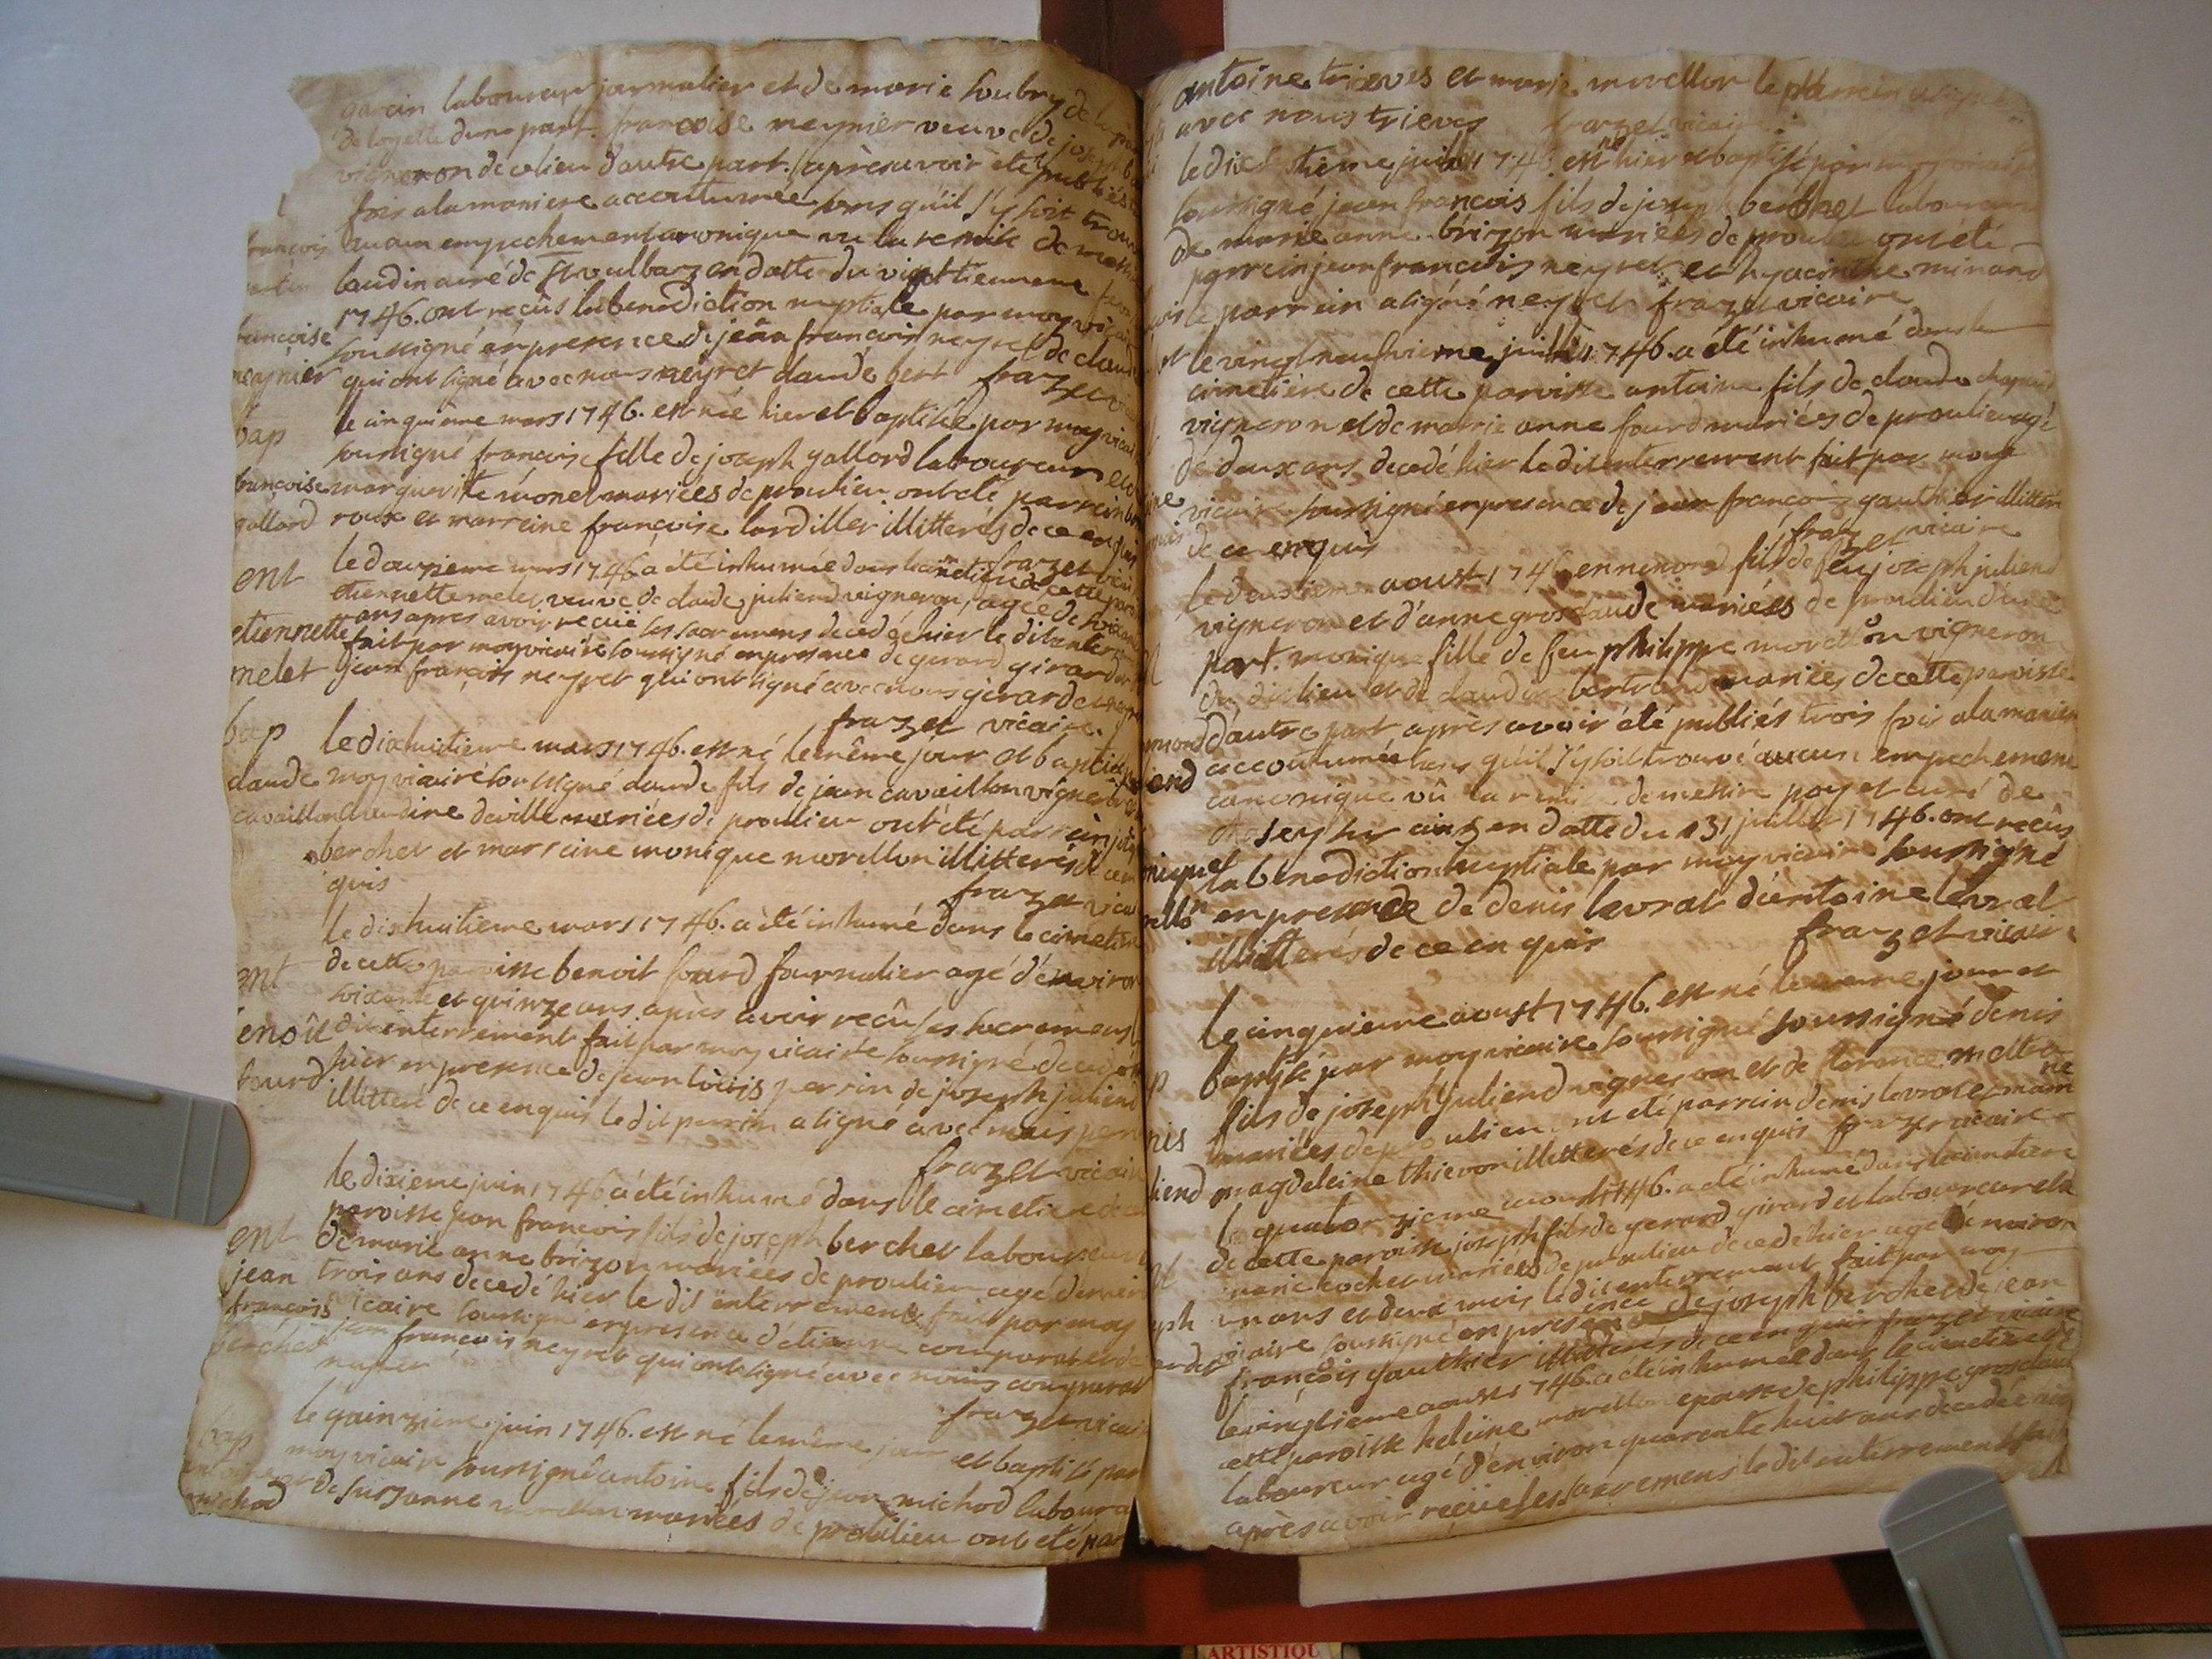 garcin laboureur jarmalier et de marie soubry de
de loyelle dune part. francoise meynier veuve de joseph
vigneron de ce lieu dautre part. apres avoir eté publiés
fois ala maniere accoutumée sans qu'il s'y soit trouvé
françois aucun empechement canonique vu la remise de messire
martin baudin curé de st vulbaz en datte du vingttieme
1746. ont reçûs la benediction nuptiale par moy vicaire
francoise soussigné en presence de jean françois neyret de claude
meynier qui ont signé avec nous neyret claude bert frazet
bap le cinquieme mars 1746. est née hier et baptisée par moy vicaire
soussigné francoise fille de joseph gallard laboureur et
francoise marguerite monet mariées de proulieu. ont eté parrein
gallard roux et marreine françoise lardillier illitterés de ce enquis
frazet vicaire
ent le douzieme mars 1746 a été inhumée dans le cimetiere de cette
thiennette melet veuve de claude juliend vigneron, agée de soixante
ans apres avoir reçûe ses sacremens decedée hier le dit enterrement
etiennette fait par moy vicaire soussigné en presence de gerard girardet
melet jean françois neyret qui ont signé avec nous girardet neyret
frazet vicaire.
bap le dixhuitieme mars 1746. est né le même jour et baptisé
claude moy vicaire soussigné claude fils de jean cavaillon vigneron
cavaillon claudine deville mariées de proulieu ont été parrein
berchet et marreine monique morellon illitterés de ce en
quis
frazet vicaire
le dixhuitieme mars 1746. a été inhumé dans le cimetiere
ent de cette paroisse benoit fourd journalier agé d'environ
soixante et quinze ans. apres avoir reçûs ses sacremens
benoît dit enterrement fait par moy vicaire soussigné decedé
fourd hier en presence de jean louis perrin de joseph juliend
illitteré de ce enquis le dit perrin a signé avec nous perrin
frazet vicaire
le dixieme juin 1746 a été inhumé dans le cimetiere de
paroisse jean francois fils de joseph berchet laboureur
ent de marie anne brizon mariées de proulieu agé d'environ
jean trois ans decedé hier le dit enterrement fait par moy
françois vicaire soussigné en presence d'etienne comparat et de
berchet jean françois neyret qui ont signé avec nous comparat
neyret
frazet vicaire
bap le quinzieme juin 1746. est né le même jour et baptisé par
moy vicaire soussigné antoine fils de jean michod laboureur
antoine et de suzanne morellon mariées de proulieu ont eté par
michod
antoine trieves et marie morellon le parrein a signé
avec nous trieves frazet vicaire
le dixhuitieme juillet 1746. est né hier et baptisé par moy vicaire
soussigné jean francois fils de joseph berchet laboureur
de marie anne brizon mariées de proulieu ont été
parrein jean francois neyret et hyacinthe minand
le parrein a signé neyret frazet vicaire
le vingt neufvieme juillet 1746. a été inhumé dans le
cimetiere de cette paroisse antoine fils de claude
vigneron et de marie anne fourd mariées de proulieu agé
de deux ans decedé hier le dit enterrement fait par moy
vicaire soussigné en presence de jean françois gauthier illitteré
de ce enquis frazet vicaire
le deuxieme aoust 1746 ennemond fils de feu joseph juliend
vigneron et d'anne grosclaude mariées de proulieu d'une
part. monique fille de feu philippe morellon vigneron
du dit lieu et de claudine bertrand mariées de cette paroisse
d'autre part, après avoir été publiés trois fois ala maniere
accoutumée sans qu'il s'y soit trouvé aucun empechement
canonique vû la remise de messire payet curé de
en datte du 31 juillet 1746. ont reçûs
la benediction nuptiale par moy vicaire soussigné
en presence de denis levrat d'antoine levrat
illitterés de ce enquis frazet vicaire
le cinquieme aoust 1746. est né le meme jour et
baptisé par moy vicaire soussigné soussigné denis
fils de joseph juliend vigneron et de florence
mariées de proulieu ont eté parrein denis levrat et marreine
magdeleine thievon illitterés de ce enquis frazet vicaire
le quatorzieme aoust 1746. a été inhumé dans le cimetiere
de cette paroisse joseph fils de gerard girardet laboureur et de
marie cochet mariées de proulieu decedé hier agé d'environ
un ans et deux mois le dit enterrement fait par moy
vicaire soussigné en presence de joseph berchet de jean
françois gauthier illitterés de ce enquis frazet vicaire
le vingtieme aoust 1746. a été inhumée dans le cimetiere de
cette paroisse heleine morellon epouse de philippe grosclaude
laboureur agé d'environ quarente huit ans decedée hier
après avoir reçûe ses sacremens le dit enterrement fait
ARTISTIQU